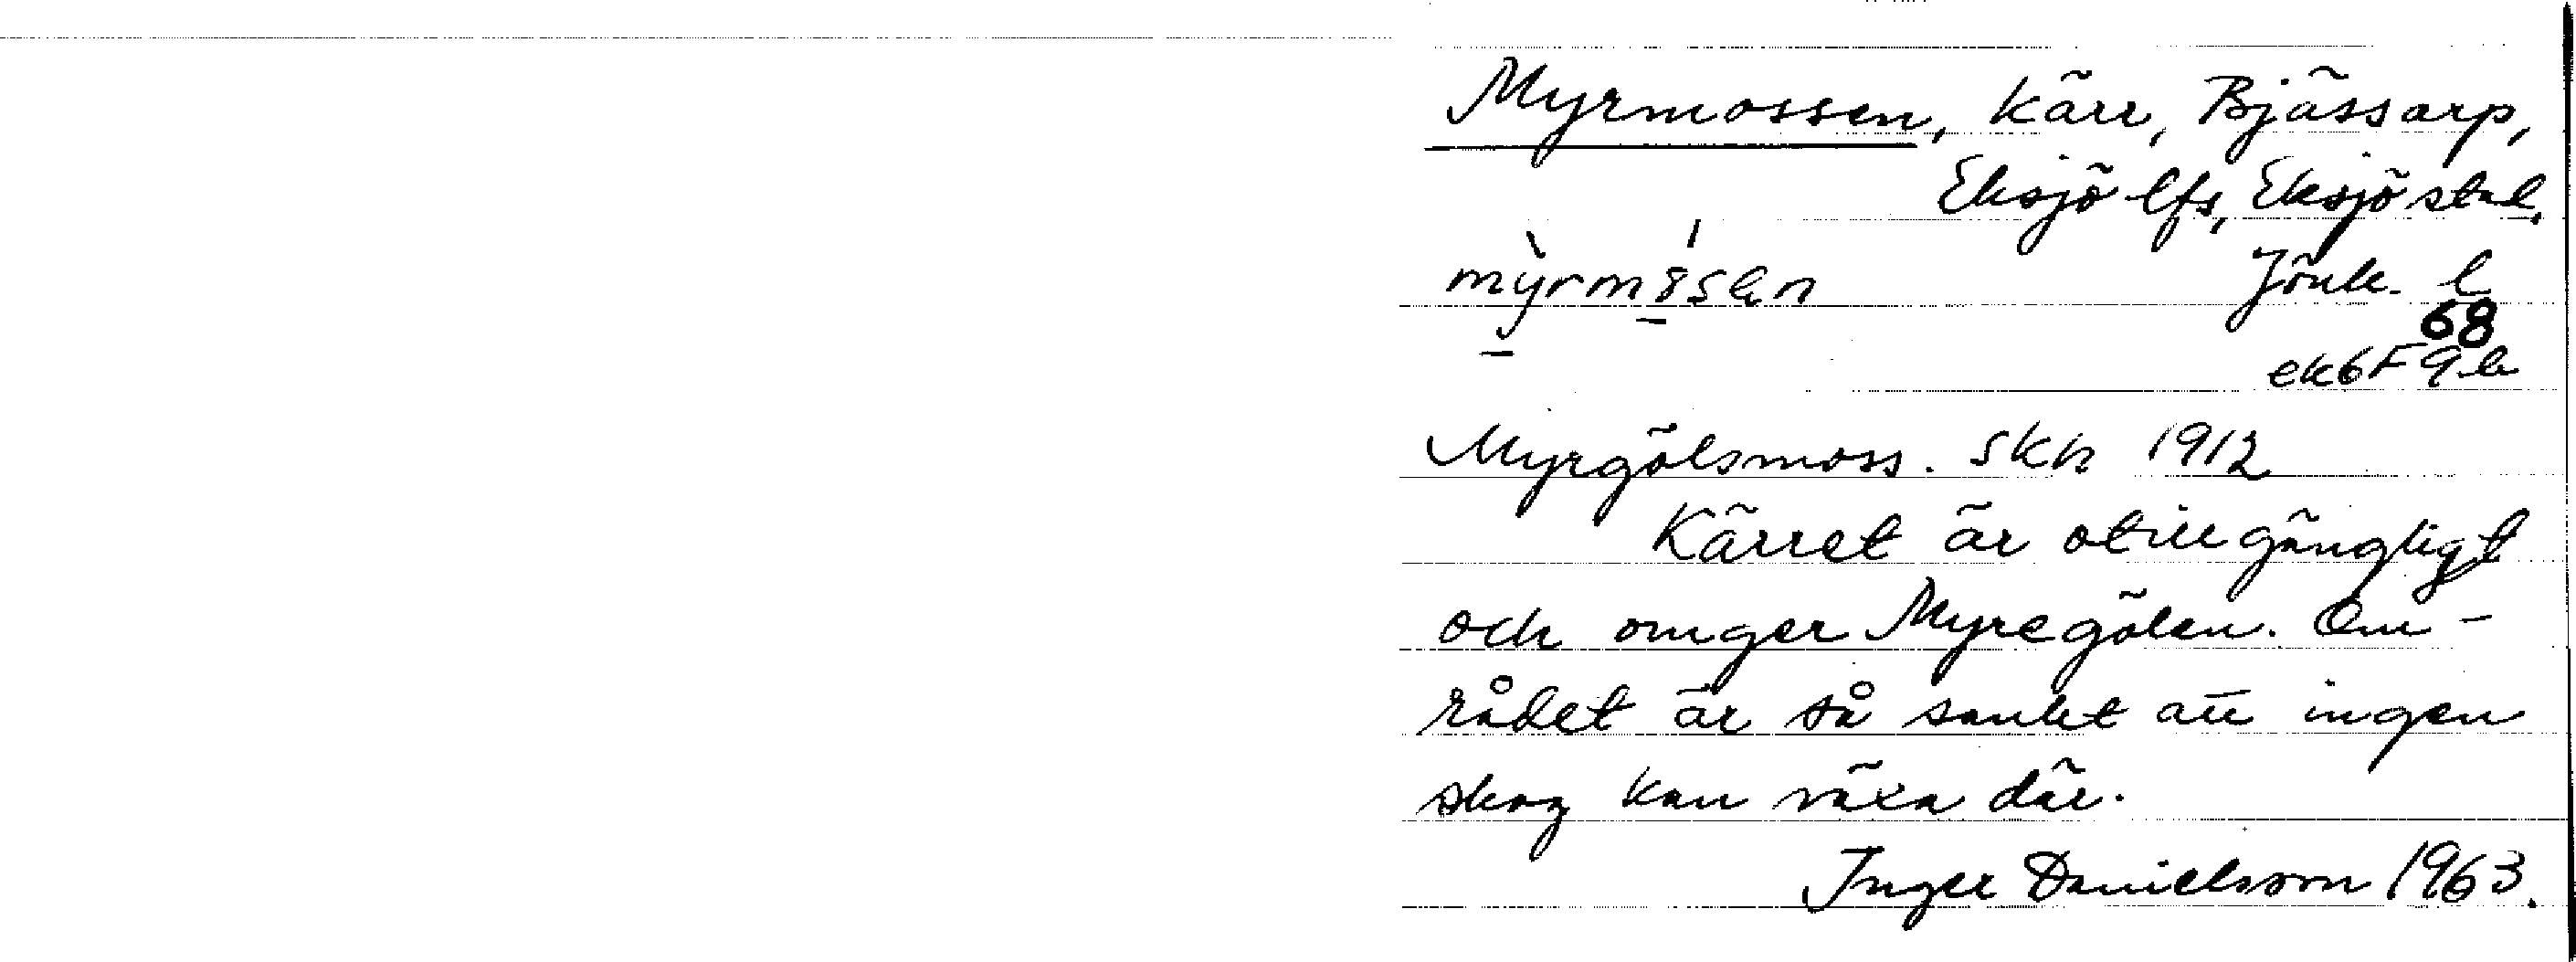 Myrmossen, Kärr, Bjässarp,
Eksjö lfs, Eksjö stad,
Jönk. l
68
ek 6F 9b
Myrgölsmoss. skn 1912
Kärret är otillgängligt
och omger Myregölen. Om-
rådet är så sankt att ingen
skog kan växa där.
Inger Danielsson 1963.